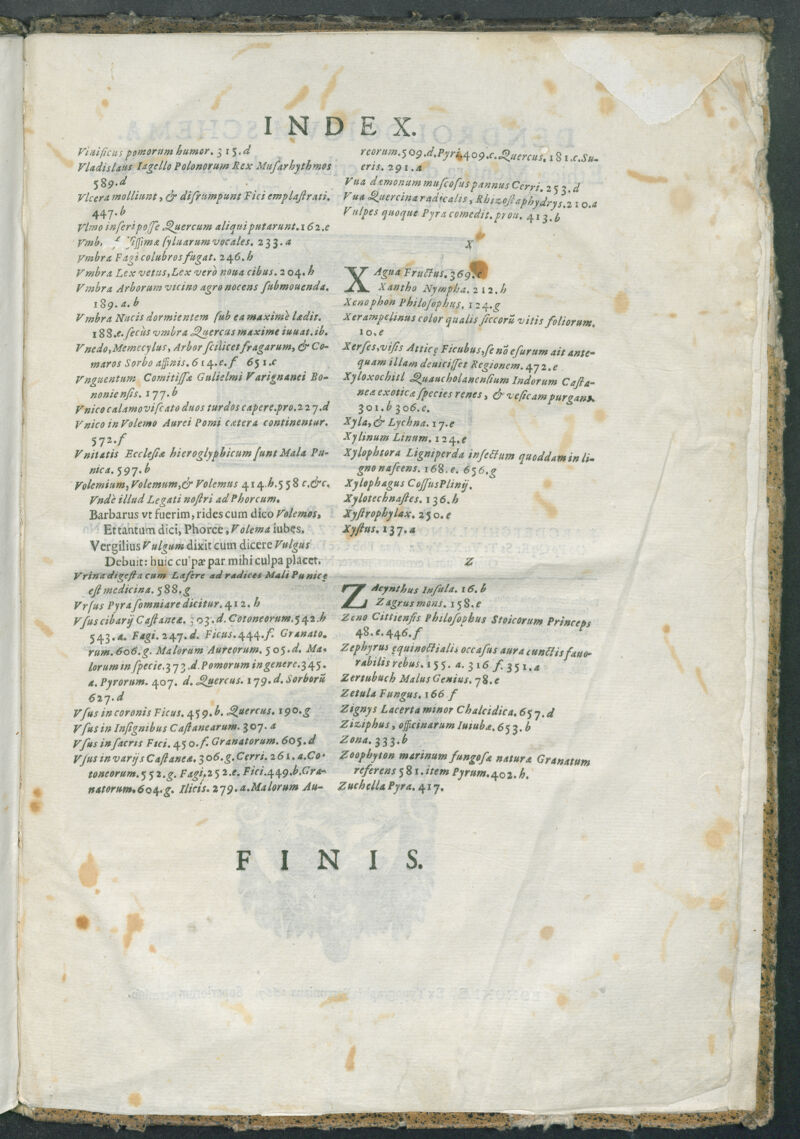 INDEX.
Viuificus pomorum humor. 315.d
Vladislaus Iagello Polonorum Rex Musarhythmos
589.d
Vlcera molliunt, & disrumpunt Fici emplastrati.
447.b
Vlmo inseri posse Quercum aliqui putarunt. 162.e
Vmb, syluarum vocales. 233.a
Vmbra Fagi colubros fugat. 246.h
Vmbra Lex vetus, Lex verò noua cibus. 204.h
Vmbra Arborum vicino agro nocens submouenda.
189.a.b
Vmbra Nucis dormientem sub ea maximè lædit.
188.e. secùs vmbra Quercus maxime iuuat. ib.
Vnedo, Memecylus, Arbor scilicet fragarum, & Co-
maros Sorbo affinis. 614.e.f 651.c
Vnguentum Comitissæ Gulielmi Varignanei Bo-
noniensis. 177.b
Vnico calamo viscato duos turdos capere. pro. 227.d
Vnico in Volemo Aurei Pomi cætera continentur.
572.f
Vnitatis Ecclesiæ hieroglyphicum sunt Mala Pu-
nica. 597.b
Volemium, Volemum, & Volemus 414.h. 558 c. &c.
Vnde illud Legati nostri ad Phorcum.
Barbarus vt fuerim, rides cum dico Volemos,
Et tantum dici, Phorce, Volema iubes.
Vergilius Vulgum dixit cum dicere Vulgus
Debuit: huic cu'pæ par mihi culpa placet.
Vrina digesta cum Lasere ad radices Mali Punicę
est medicina. 588.g
Vrsus Pyra somniare dicitur. 412.h
Vsus cibarij Castaneæ. 303.d. Cotoneorum. 542.h
543.a. Fagi. 247.d. Ficus. 444.f. Granato.
rum. 606.g. Malorum Aureorum. 505.d. Ma-
lorum in specie. 373.d. Pomorum in genere. 345.
a. Pyrorum. 407. d. Quercus. 179.d. Sorborũ
627.d
Vsus in coronis Ficus. 459.b. Quercus. 190.g
Vsus in Insignibus Castanearum. 307.a
Vsus in sacris Fici. 450.f. Granatorum. 605.d
Vsus in varijs Castaneæ. 306.g. Cerri. 261.a. Co-
toneorum. 552.g. Fagi. 252.e. Fici. 449.b. Gra-
natorum. 604.g. Ilicis. 279.a. Malorum Au-
reorum. 509.d. Pyri. 409.c. Quercus. 181.c. Su-
eris. 291.a
Vua dæmonum muscosus pannus Cerri. 253.d
Vua Quercina radicalis, Rhizostaphydrys. 210.a
Vulpes quoque Pyra comedit. prou. 413.b
X
XAgua Fructus. 369.e
Xantho Nympha. 212.h
Xenophon Philosophus. 124.g
Xerampelinus color qualis siccorũ vitis foliorum.
10.e
Xerses, visis Atticę Ficubus, se nõ esurum ait ante-
quam illam deuicisset Regionem. 472.e
Xyloxochitl Quaucholanensium Indorum Casta-
nea exotica species renes, & vesicam purgans.
301.b 306.e.
Xyla, & Lychna. 17.e
Xylinum Linum. 124.e
Xylophtora Ligniperda insectum quoddam in li-
gno nascens. 168.e. 656.g
Xylophagus Cossus Plinij.
Xylotechnastes. 136.h
Xystrophylax. 250.e
Xystus. 137.a
Z
ZAcynthus Insula. 16.b
Zagrus mons. 158.e
Zeno Cittiensis Philosophus Stoicorum Princeps
48.e. 446.f
Zephyrus ęquinoctialis occasus aura cunctis fauo-
rabilis rebus. 155. a. 316 f. 351.a
Zertubuch Malus Genius. 78.e
Zetula Fungus. 166 f
Zignys Lacerta minor Chalcidica. 657.d
Ziziphus, officinarum Iuiuba. 653.b
Zona. 333.b
Zoophyton marinum fungosa natura Granatum
referens 581. item Pyrum. 402.h.
Zuchella Pyra. 417.
FINIS.